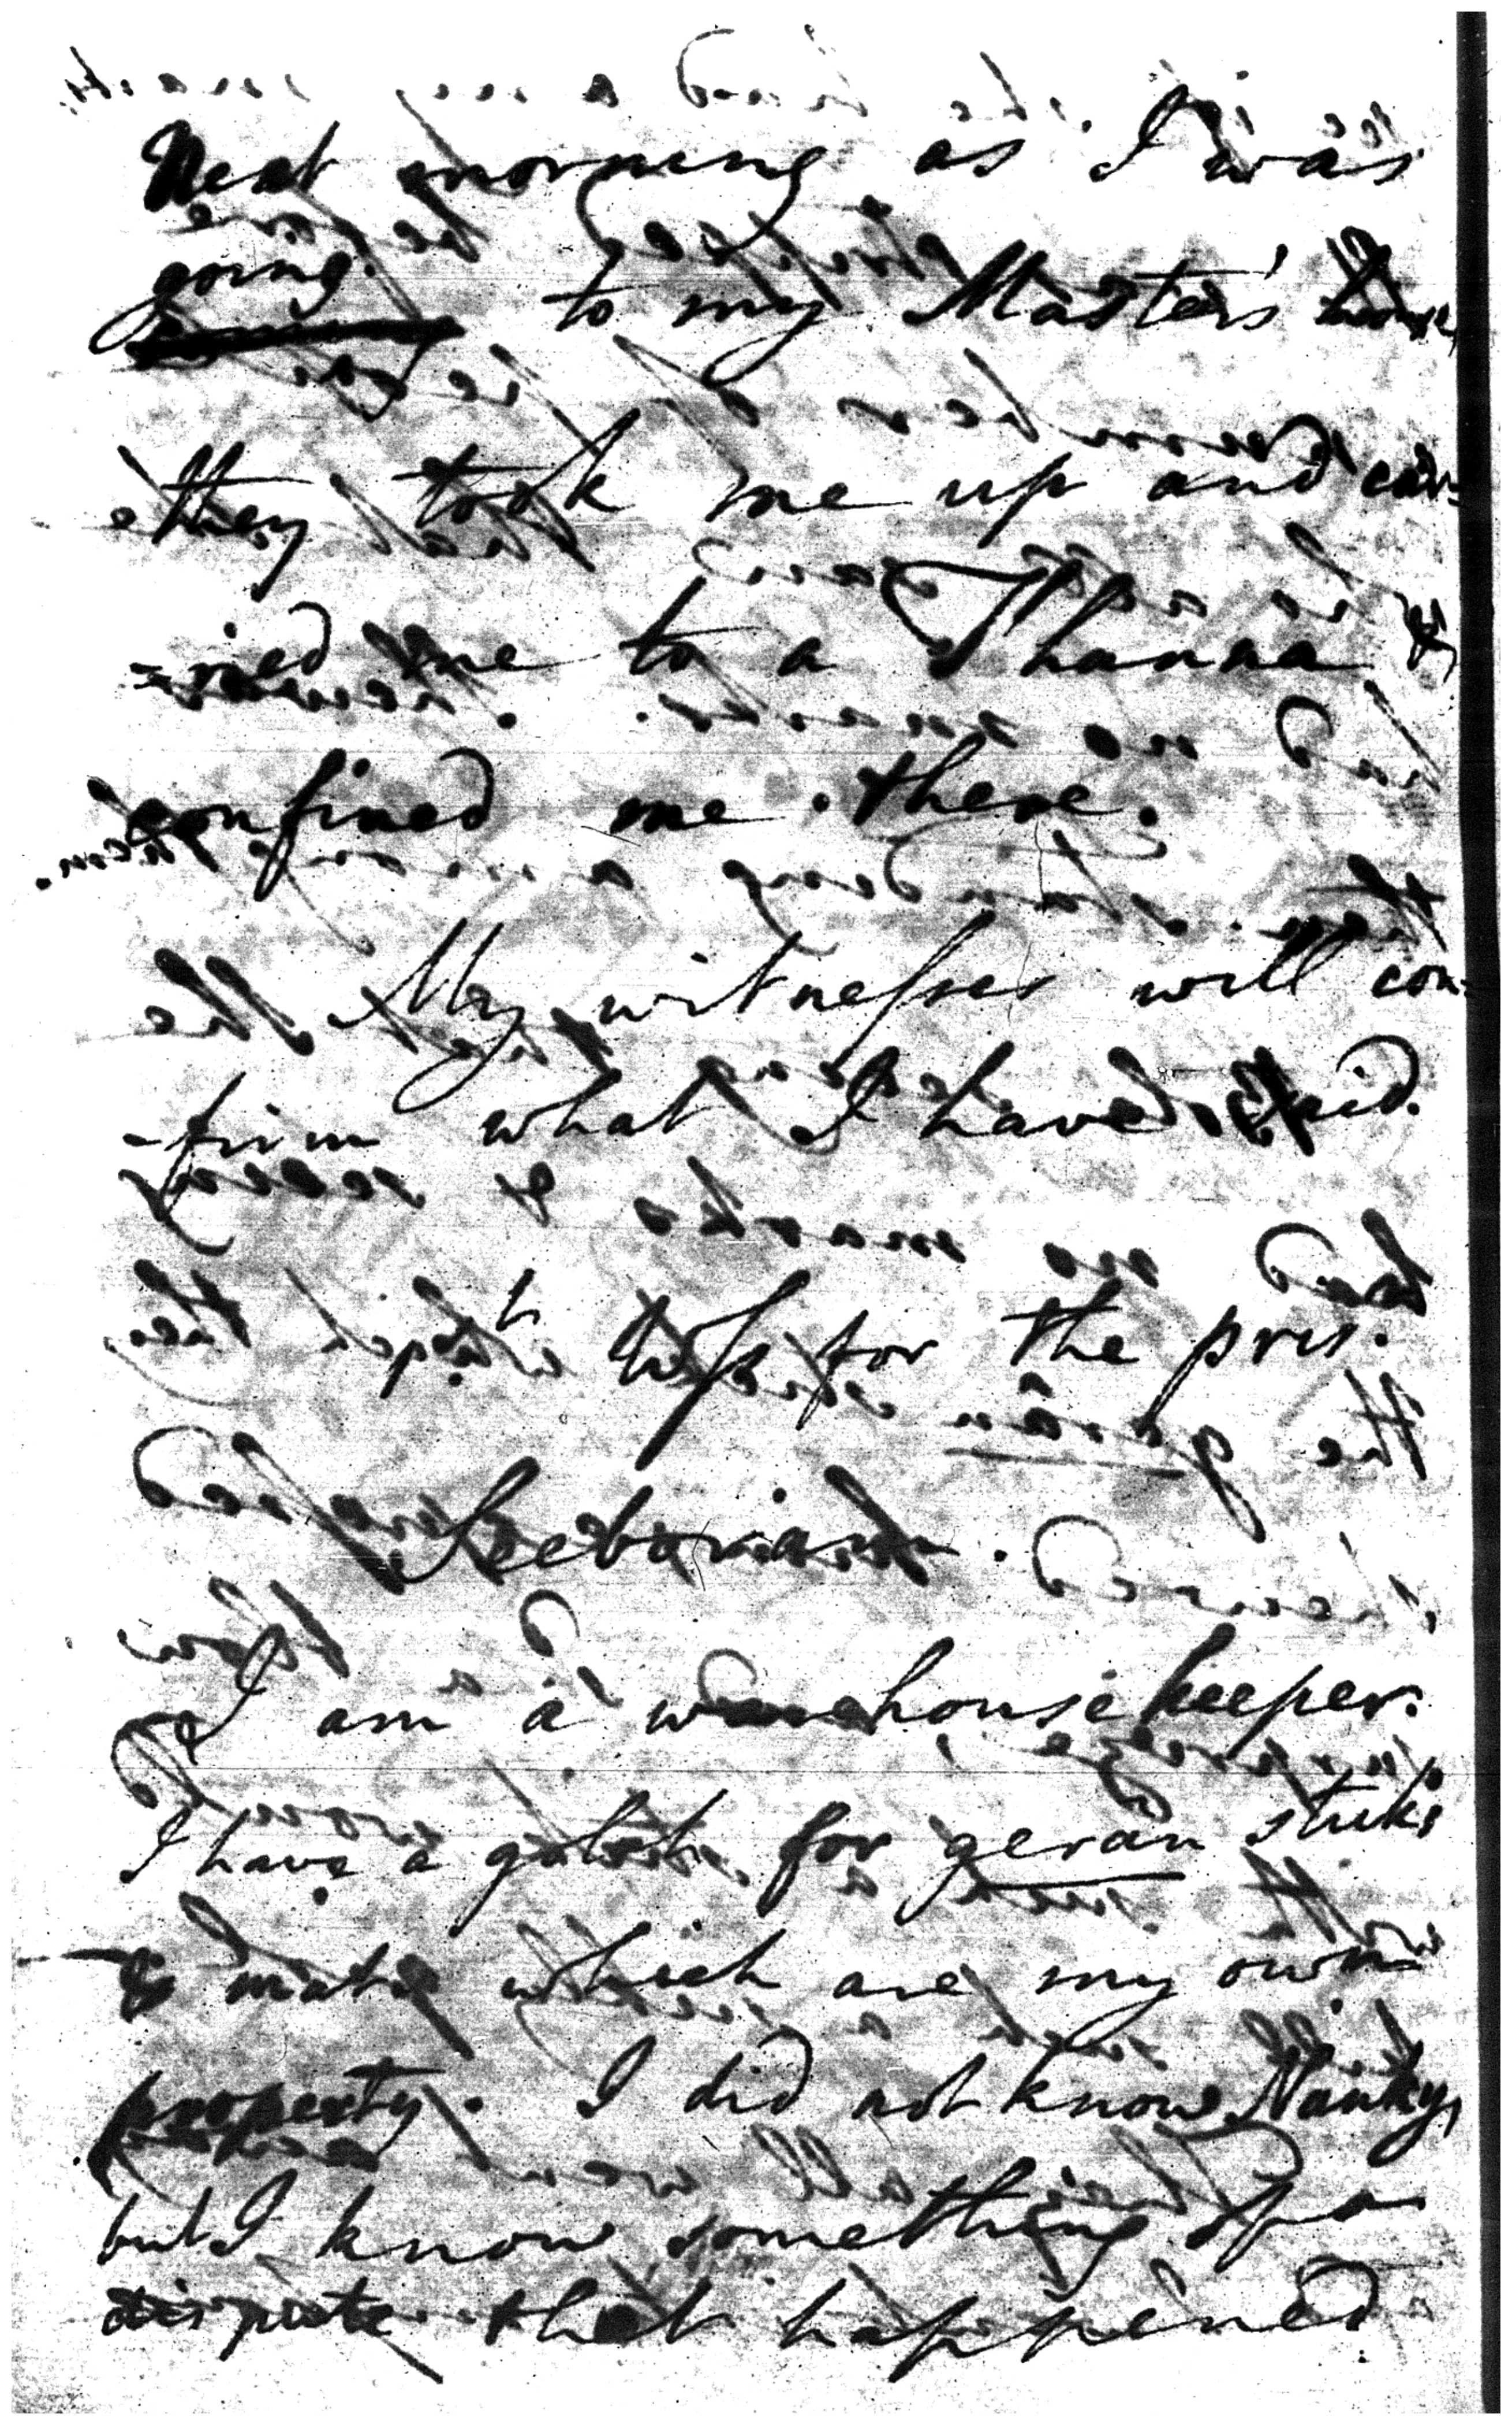 Next morning as I was
going
to my Master's house,
they took me up and car=
=ried me to a Thanna &
confined me there.
My witnesses will con=
-firm what I have said.
1st Wss for the pris.
Seeboram.
I am a warehouse keeper.
I have a golah for geran sticks
& mats which are my own
property. I did not know Nanky,
but I know something of a
dispute that happened